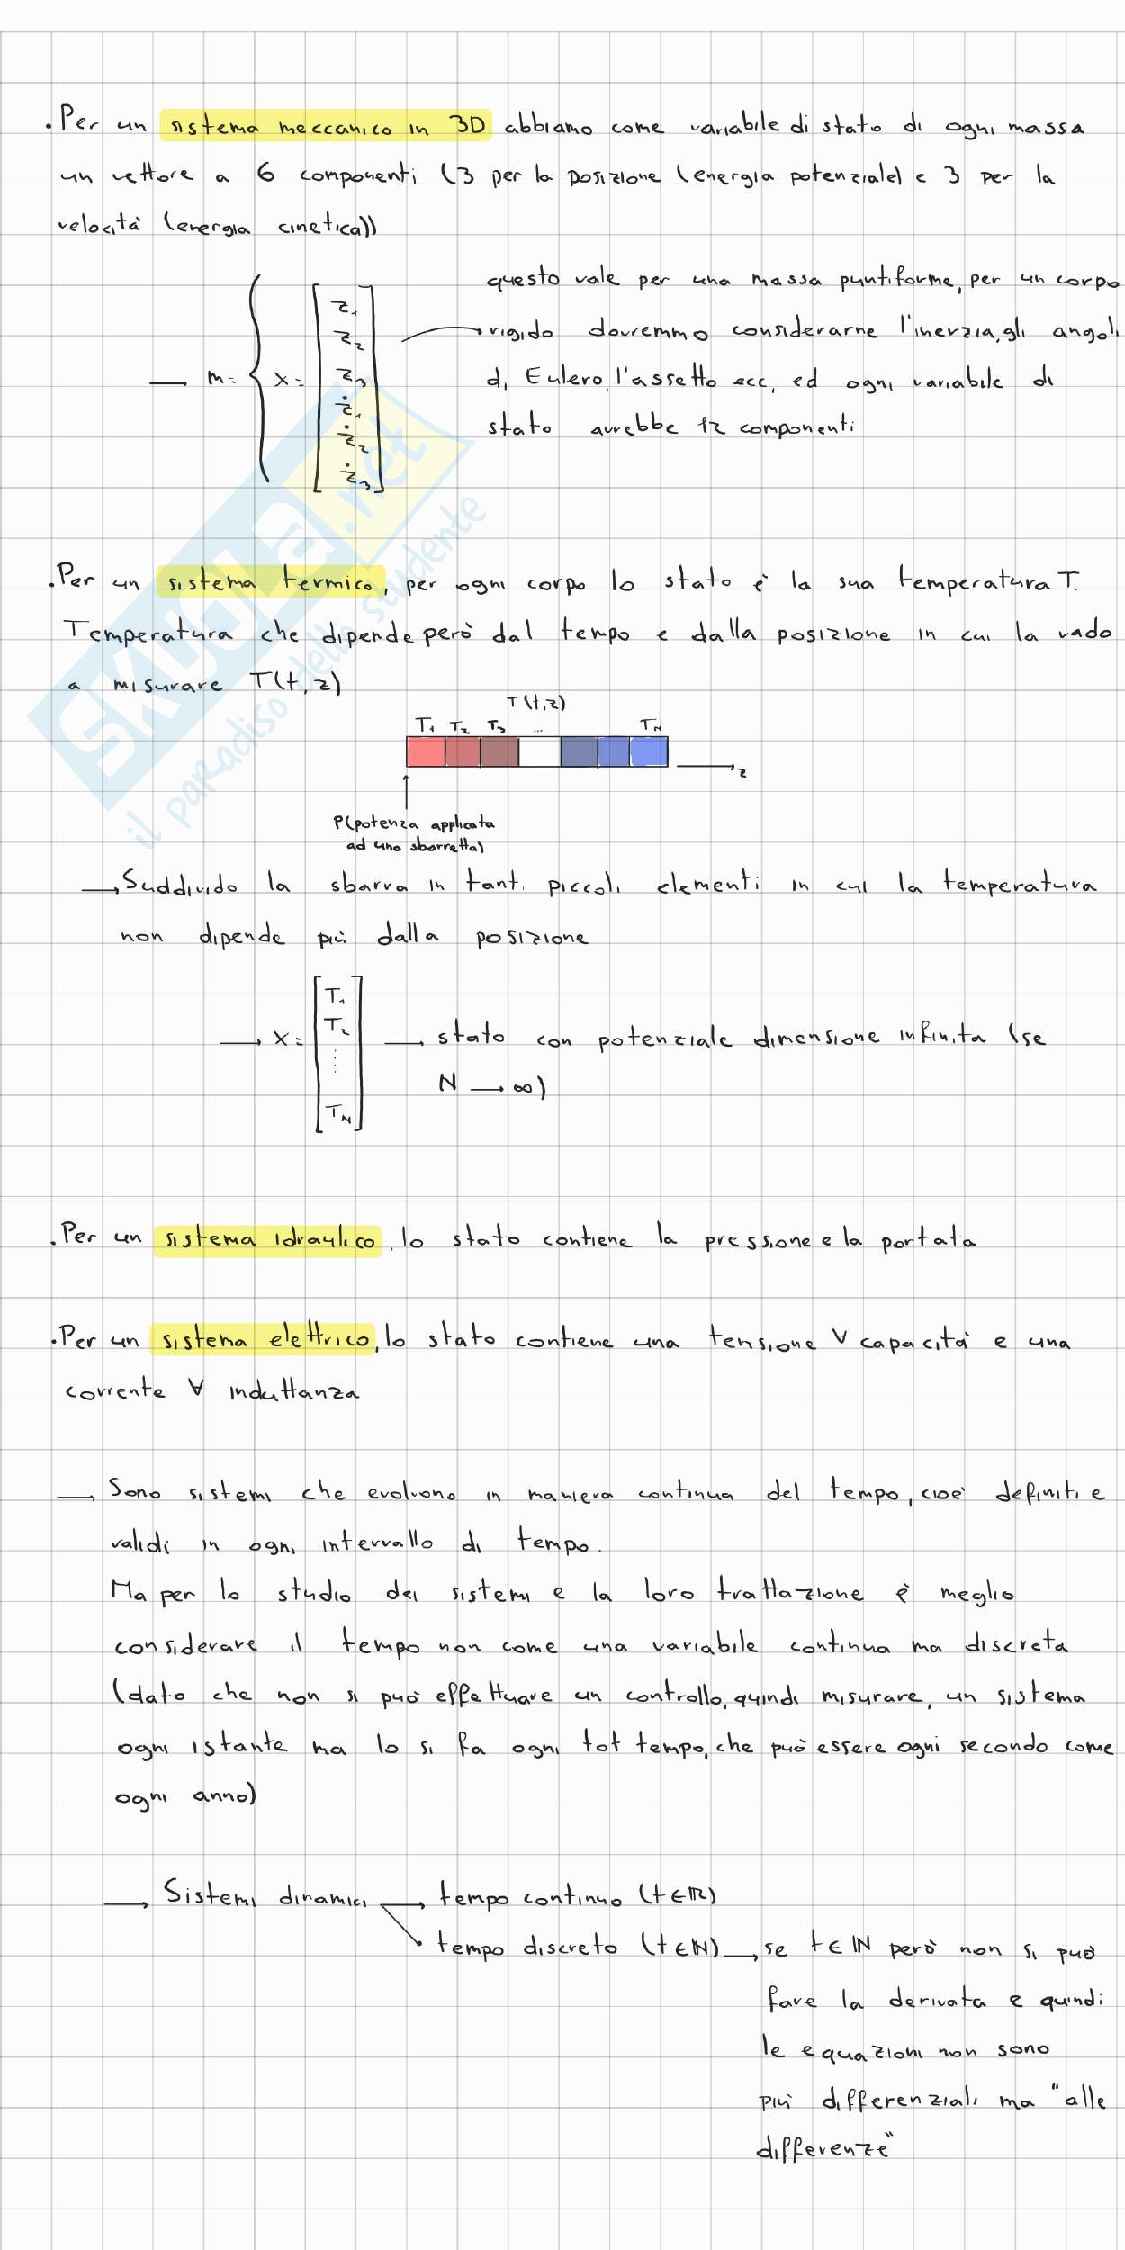 .Per un sistema meccanico in 3D abbiamo come variabile di stato di ogni massa
un vettore a 6 componenti (3 per la posizione (energia potenziale) e 3 per la
velocità (energia cinetica))
questo vale per una massa puntiforme, per un corpo
rigido dovremmo considerarne l'inerzia, gli angoli
di Eulero, l'assetto ecc, ed ogni variabile di
stato avrebbe 12 componenti
→ m = { x = [z₁ z₂ z₃ ż₁ ż₂ ż₃]
.Per un sistema termico, per ogni corpo lo stato è la sua temperatura T.
Temperatura che dipende però dal tempo e dalla posizione in cui la vado
a misurare T(t,z)
T(t,z)
T₁ T₂ T₃ ... T_N
z
P(potenza applicata
ad una sbarretta)
→ Suddivido la sbarra in tanti piccoli elementi in cui la temperatura
non dipende più dalla posizione
→ x = [T₁ T₂ ..... T_N] → stato con potenziale dimensione infinita (se
N → ∞)
.Per un sistema idraulico, lo stato contiene la pressione e la portata
.Per un sistema elettrico, lo stato contiene una tensione ∀ capacità e una
corrente ∀ induttanza
→ Sono sistemi che evolvono in maniera continua del tempo, cioè definiti e
validi in ogni intervallo di tempo.
Ma per lo studio dei sistemi e la loro trattazione è meglio
considerare il tempo non come una variabile continua ma discreta
(dato che non si può effettuare un controllo, quindi misurare, un sistema
ogni istante ma lo si fa ogni tot tempo, che può essere ogni secondo come
ogni anno)
→ Sistemi dinamici → tempo continuo (t∈ℝ)
tempo discreto (t∈ℕ) → se t∈ℕ però non si può
fare la derivata e quindi
le equazioni non sono
più differenziali ma "alle
differenze"
SKUOLA.net
il paradiso dello studente